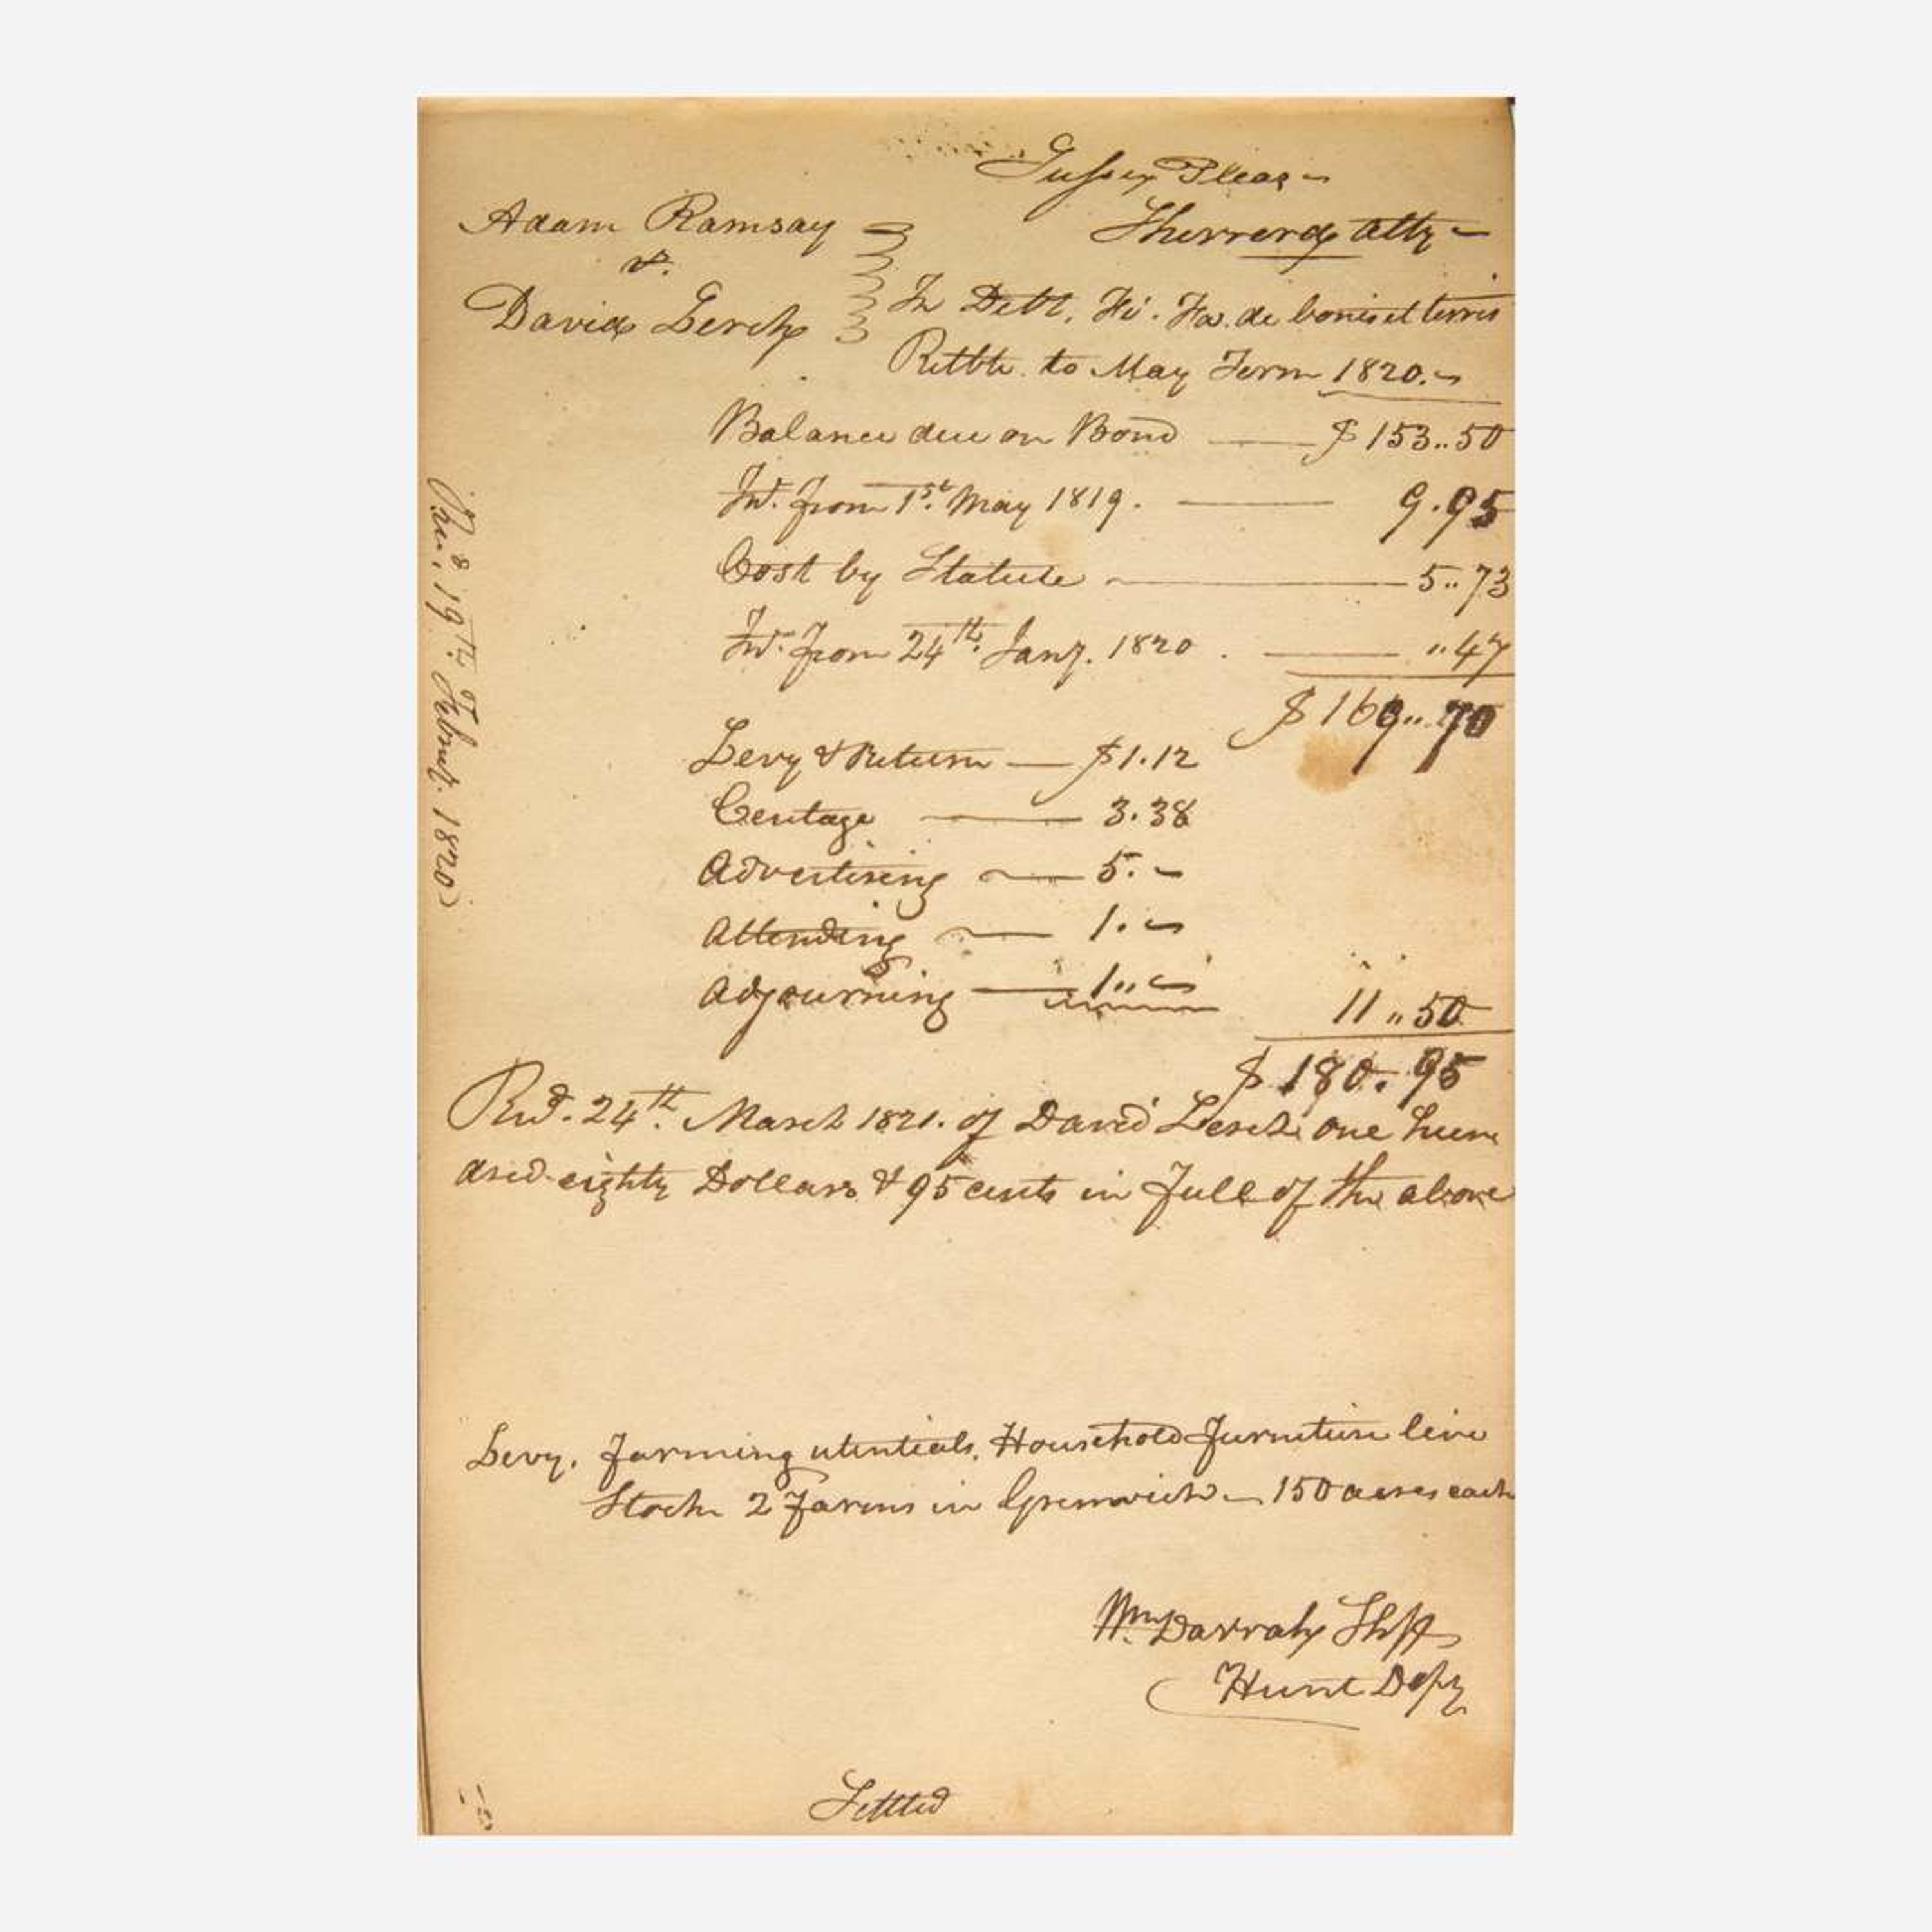 Sussex Pleas
Adam Ramsay
Sherrerd Atty
vs.
David Lerch
In Debt. Fi. Fa. de bonis et terris
Retble. to May Term 1820.
Balance due on Bond — $153..50
Int. from 1st. May 1819. — 9.95
Cost by Statute — 5..73
Int. from 24th. Jany. 1820. — ..47
$169..70
Levy & Return — $1.12
Centage — 3.38
Advertising — 5.-
Attending — 1.-
Adjourning — 1..-
11..50
$180.95
Recd. 24th. March 1821. of David Lerch one hun
dred eighty Dollars & 95 cents in full of the above
Levy. farming utentials, Household furniture live
Stock 2 Farms in Greenwich — 150 acres each
Wm. Darrah Shff
Hunt Depy
Settled
Recd. 19th. Februy. 1820